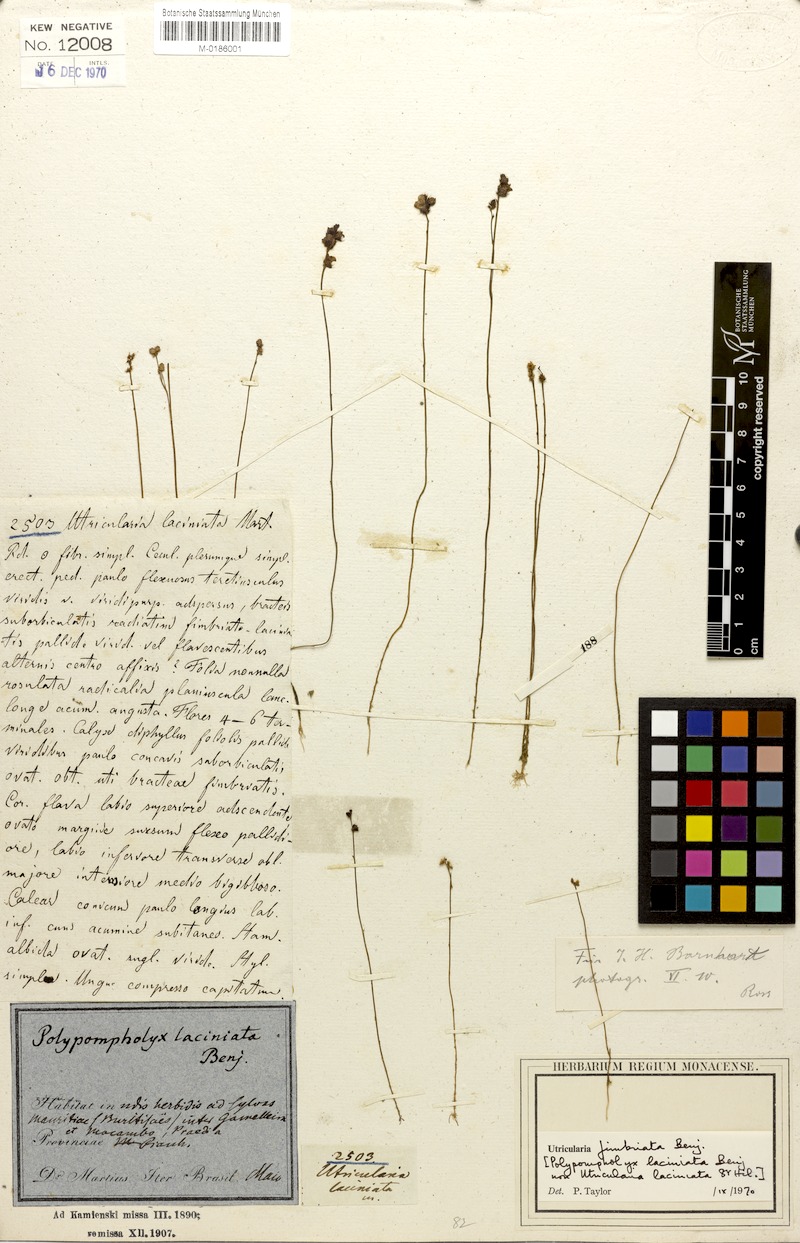 KEW NEGATIVE
No. 12008
DATE INTLS.
16 DEC 1970
Botanische Staatssammlung München
M-0186001
BOTANISCHE
STAATSSAMMLUNG
MÜNCHEN
copyright reserved
0 1 2 3 4 5 6 7 8 9 10
cm
188
2503 Utricularia laciniata Mart.
Rd. fibr. simpl. Caul. plerumque simpl.
erect. ped. paulo flexuosus teretiusculus
viridis v. viridipurp. adspersus, bracteis
suborbiculatis radiatim fimbriato-lacinia
tis pallid. virid. vel flavescentibus
alternis centro affixis? Folia nonnulla
rosulata radicalia planiuscula lanc.
longe acum. angusta. Flores 4-6 ter-
minales. Calyx diphyllus foliolis pallide
viridibus paulo concavis suborbiculatis
ovat. obt. uti bracteae fimbriatis.
Cor. flava labio superiore adscendente
ovato margine sursum flexo pallidi-
ore, labio inferiore transverse obl.
majore interiore medio bigibboso.
Calcar conicum paulo longius lab.
inf. cum acumine subitaneo. Stam.
albida ovat. virid. Styl.
simplex. compresso capitatum.
Polypompholyx laciniata
Benj.
Habitat in udis herbidis ad sylvas
mauritiae (Buritisäe) inter Gamelleira
et Mocambo, Praedia
Provinciae
Dr. Martius Iter Brasil. Majo
Ad Kamienski missa III. 1890;
remissa XII. 1907.
2503
Utricularia
laciniata
m.
82
Für J. H. Barnhart
photogr. VI. 10.
Ross
HERBARIUM REGIUM MONACENSE.
Utricularia fimbriata Benj.
[Polypompholyx laciniata Benj.
non Utricularia laciniata St Hil.]
Det. P. Taylor /ix/1970